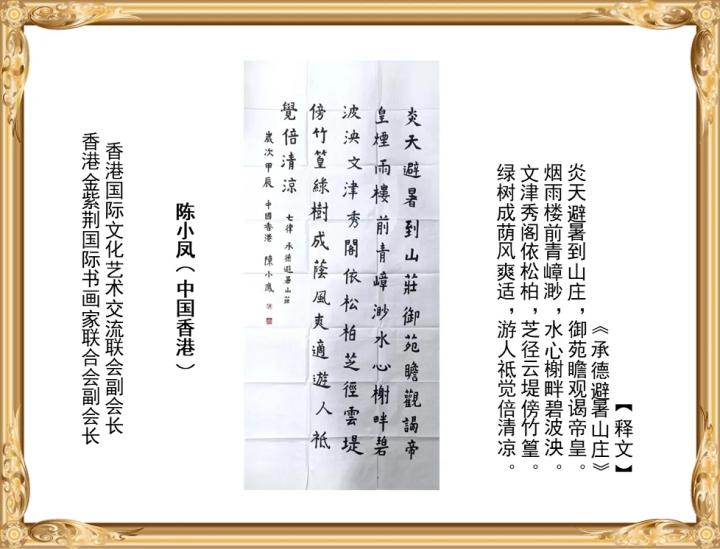 【释文】
《承德避暑山庄》
炎天避暑到山庄，御苑瞻观谒帝皇。
烟雨楼前青嶂渺，水心榭畔碧波泱。
文津秀阁依松柏，芝径云堤傍竹篁。
绿树成荫风爽适，游人祗觉倍清凉。
炎天避暑到山莊御苑瞻觀謁帝
皇煙雨樓前青嶂渺水心榭畔碧
波泱文津秀閣依松柏芝徑雲堤
傍竹篁綠樹成蔭風爽適遊人祗
覺倍清涼
七律 承德避暑山莊
歲次甲辰 中國香港 陳小鳳
陈小凤（中国香港）
香港国际文化艺术交流联会副会长
香港金紫荆国际书画家联合会副会长